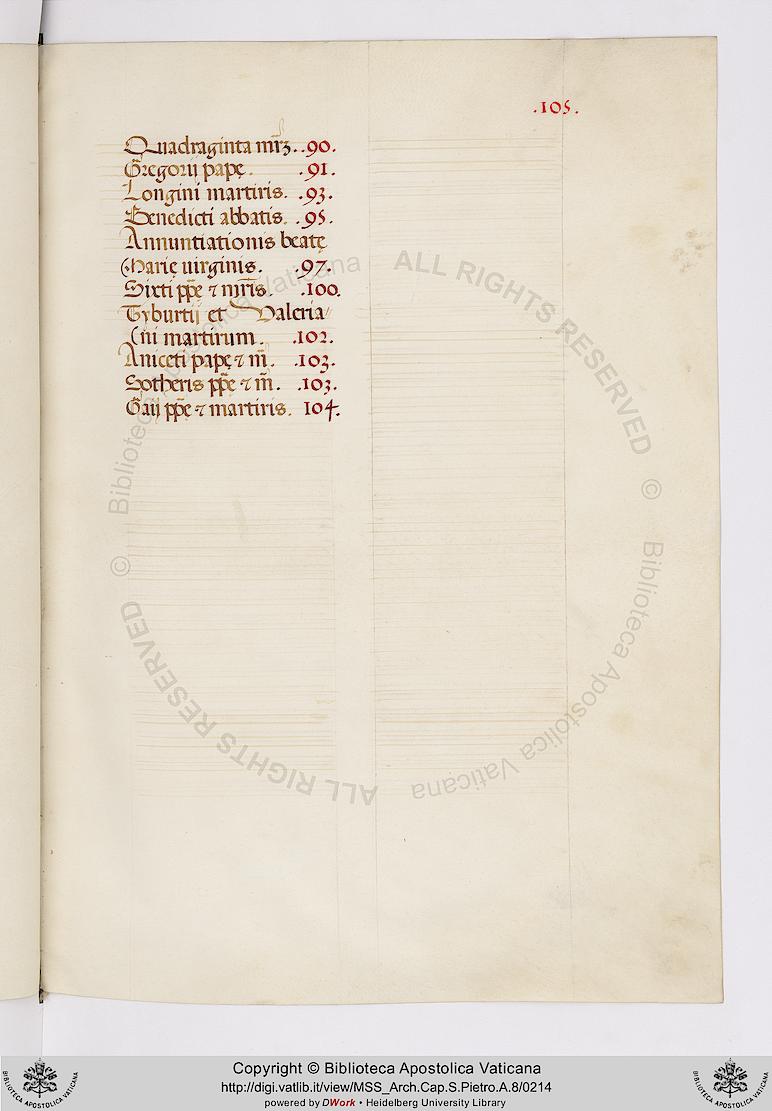 .105.
Quadraginta mr̄ꝫ. .90.
Gregorij papę. .91.
Longini martiris. .93.
Benedicti abbatis. .95.
Annuntiationis beatę
(Marię uirginis. .97.
Sixti pp̄ę ⁊ mr̄is. .100.
Tyburtij et Valeria
(ni martirum. .102.
Aniceti papę ⁊ m̄. .103.
Sotheris pp̄ę ⁊ m̄. .103.
Gaij pp̄ę ⁊ martiris. 104.
© Biblioteca Apostolica Vaticana ALL RIGHTS RESERVED
© Biblioteca Apostolica Vaticana ALL RIGHTS RESERVED
Copyright © Biblioteca Apostolica Vaticana
http://digi.vatlib.it/view/MSS_Arch.Cap.S.Pietro.A.8/0214
powered by DWork • Heidelberg University Library
BIBLIOTECA APOSTOLICA VATICANA
BIBLIOTECA APOSTOLICA VATICANA